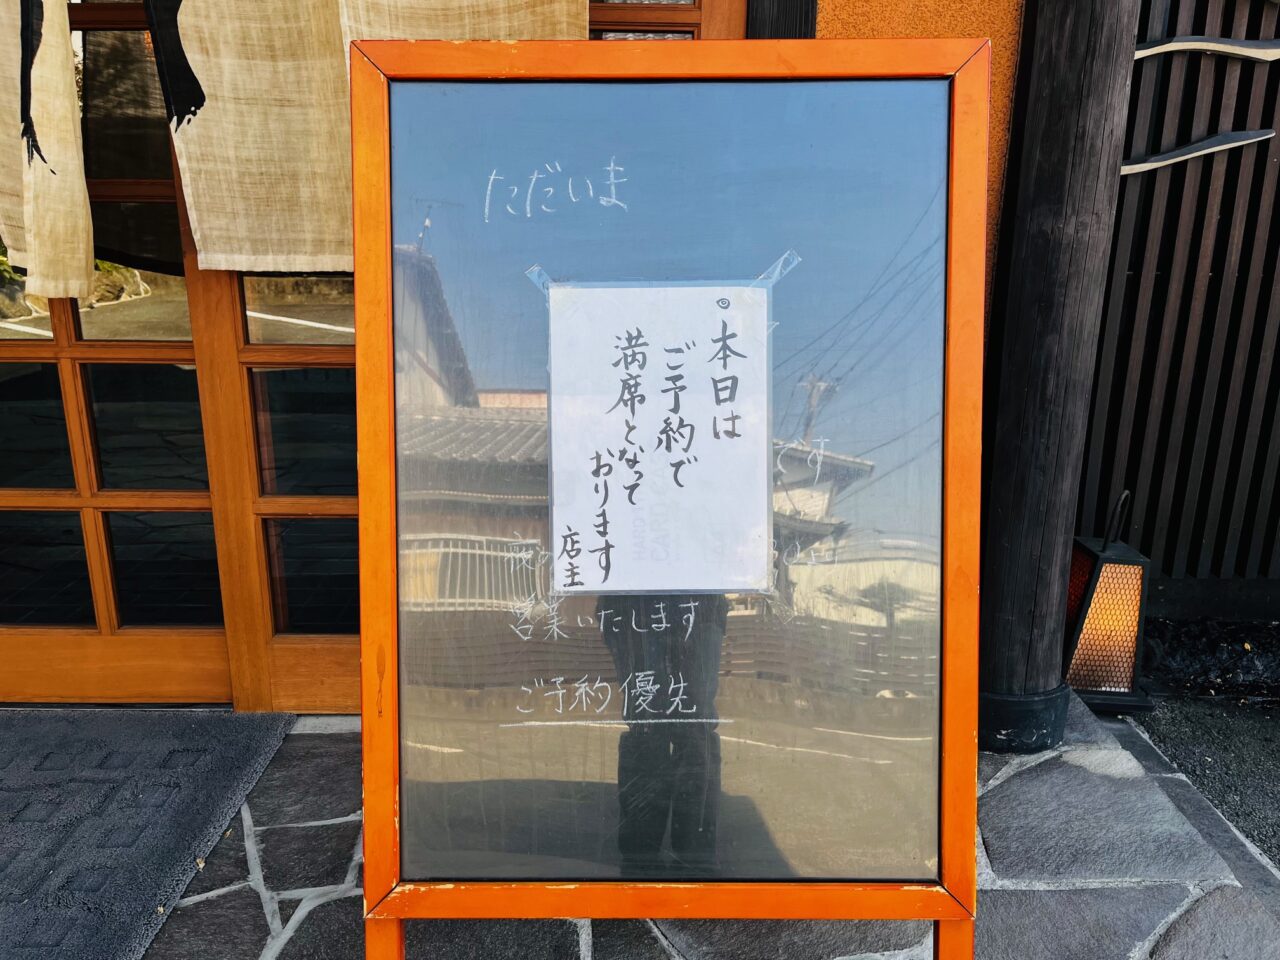 ただいま
◎本日は
ご予約で
満席となって
おります
店主
です
夜の
営業いたします
ご予約優先